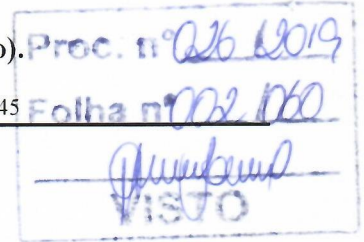 o).
Proc. nº 026 / 2019
45
Folha nº 002 / 060
VISTO